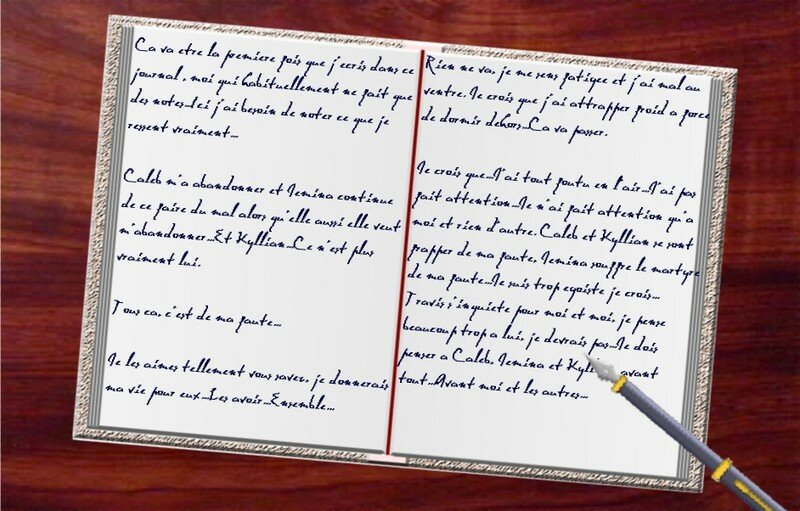 Ca va etre la premiere fois que j'ecris dans ce
journal, moi qui habituellement ne fait que
des notes...Ici j'ai besoin de noter ce que je
ressent vraiment...
Caleb m'a abandonner et Jemina continue
de ce faire du mal alors qu'elle aussi elle veut
m'abandonner...Et Kyllian...Ce n'est plus
vraiment lui.
Tous ca, c'est de ma faute...
Je les aimes tellement vous savez, je donnerais
ma vie pour eux...Les avoir...Ensemble...
Rien ne va, je me sens fatigee et j'ai mal au
ventre. Je crois que j'ai attrapper froid a force
de dormir dehors...Ca va passer.
Je crois que...J'ai tout foutu en l'air...J'ai pas
fait attention...Je n'ai fait attention qu'a
moi et rien d'autre. Caleb et Kyllian se sont
frapper de ma faute, Jemina souffre le martyre
de ma faute...Je suis trop egoiste je crois...
Travis s'inquiete pour moi et moi, je pense
beaucoup trop a lui, je devrais pas...Je dois
penser a Caleb, Jemina et avant
tout...Avant moi et les autres...